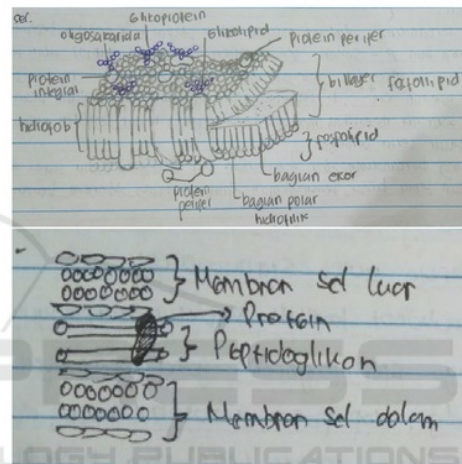 sel.
Glikoprotein
oligosakarida
Glikolipid
protein perifer
protein integral
bilayer fosfolipid
hidrofob
fospolipid
bagian ekor
protein perifer
bagian polar hidrofilik
Membran sel luar
Protein
Peptidoglikan
Membran sel dalam
PRESS
LOGY PUBLICATIONS